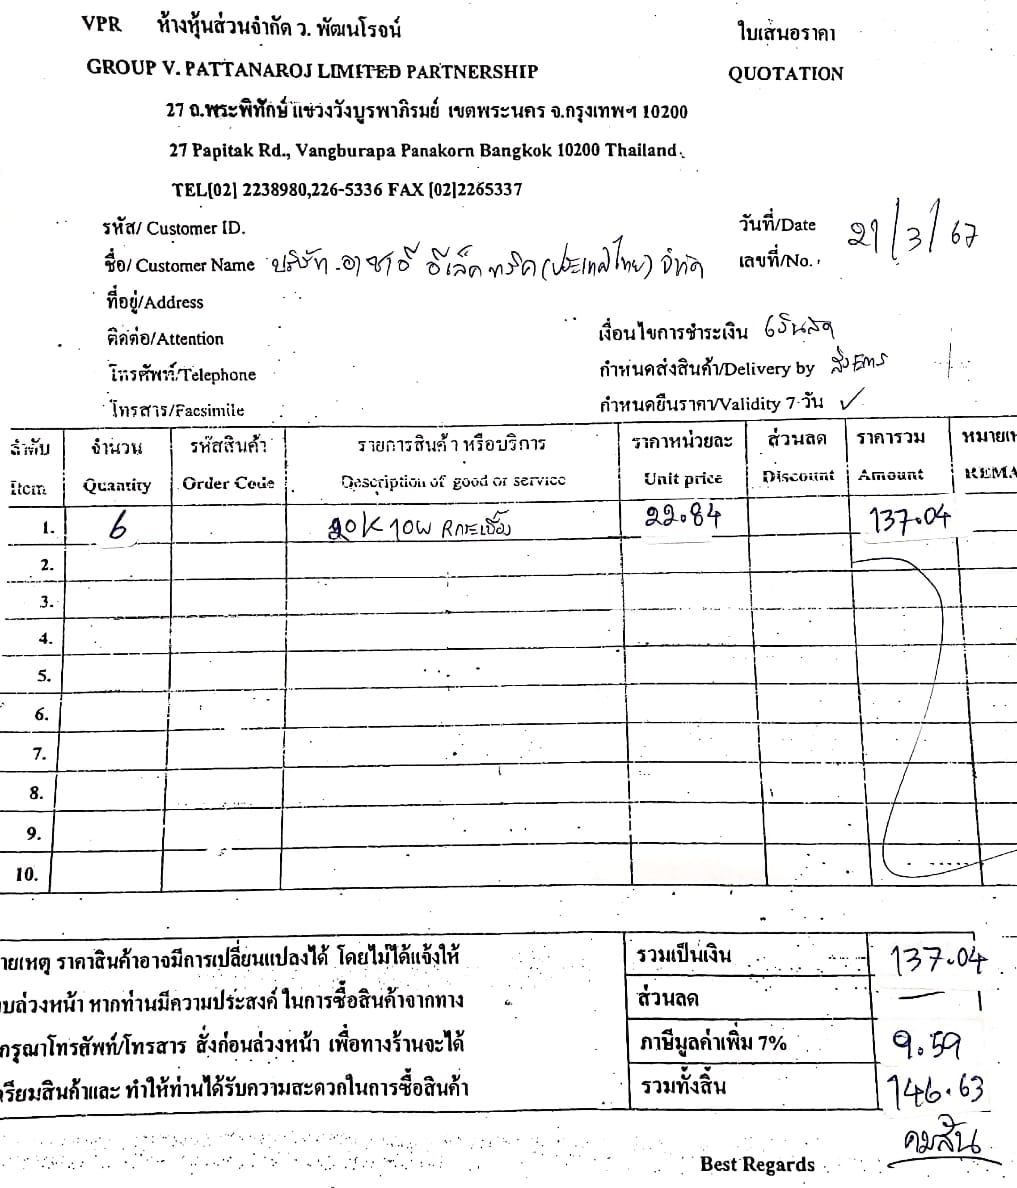 VPR ห้างหุ้นส่วนจำกัด ว. พัฒนโรจน์
ใบเสนอราคา
GROUP V. PATTANAROJ LIMITED PARTNERSHIP
QUOTATION
27 ถ.พระพิทักษ์ แขวงวังบูรพาภิรมย์ เขตพระนคร จ.กรุงเทพฯ 10200
27 Papitak Rd., Vangburapa Panakorn Bangkok 10200 Thailand.
TEL[02] 2238980,226-5336 FAX [02]2265337
รหัส/ Customer ID.
วันที่/Date 21/3/67
ชื่อ/ Customer Name บริษัท อาซาฮี อีเล็คทริค (ประเทศไทย) จำกัด
เลขที่/No.
ที่อยู่/Address
ติดต่อ/Attention
เงื่อนไขการชำระเงิน เงินสด
โทรศัพท์/Telephone
กำหนดส่งสินค้า/Delivery by ส่ง EMS
โทรสาร/Facsimile
กำหนดยืนราคา/Validity 7 วัน ✓
ลำดับ จำนวน รหัสสินค้า รายการสินค้า หรือบริการ ราคาหน่วยละ ส่วนลด ราคารวม หมายเห
Item Quantity Order Code Description of good or service Unit price Discount Amount REMA
1. 6 20K 10W Rกระเบื้อง 22.84 137.04
2.
3.
4.
5.
6.
7.
8.
9.
10.
ายเหตุ ราคาสินค้าอาจมีการเปลี่ยนแปลงได้ โดยไม่ได้แจ้งให้
รวมเป็นเงิน 137.04
บล่วงหน้า หากท่านมีความประสงค์ ในการซื้อสินค้าจากทาง
ส่วนลด —
กรุณาโทรศัพท์/โทรสาร สั่งก่อนล่วงหน้า เพื่อทางร้านจะได้
ภาษีมูลค่าเพิ่ม 7% 9.59
รียมสินค้าและ ทำให้ท่านได้รับความสะดวกในการซื้อสินค้า
รวมทั้งสิ้น 146.63
คมสัน
Best Regards